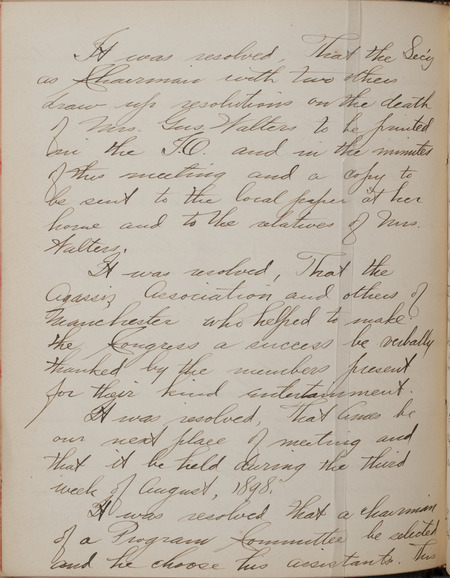 It was resolved, That the Sec'y
as Chairman with two others
draw up resolutions on the death
of Mrs. Gus Walters to be printed
in the I.O. and in the minutes
of this meeting and a copy to
be sent to the local paper at her
home and to the relatives of Mrs.
Walters.
It was resolved, That the
Agassiz Association and others of
Manchester who helped to make
the Congress a success be verbally
thanked by the members present
for their kind entertainment.
It was resolved, That Ames be
our next place of meeting and
that it be held during the third
week of August, 1898.
It was resolved that a chairman
of a Program Committee be selected
and he choose his assistants. This